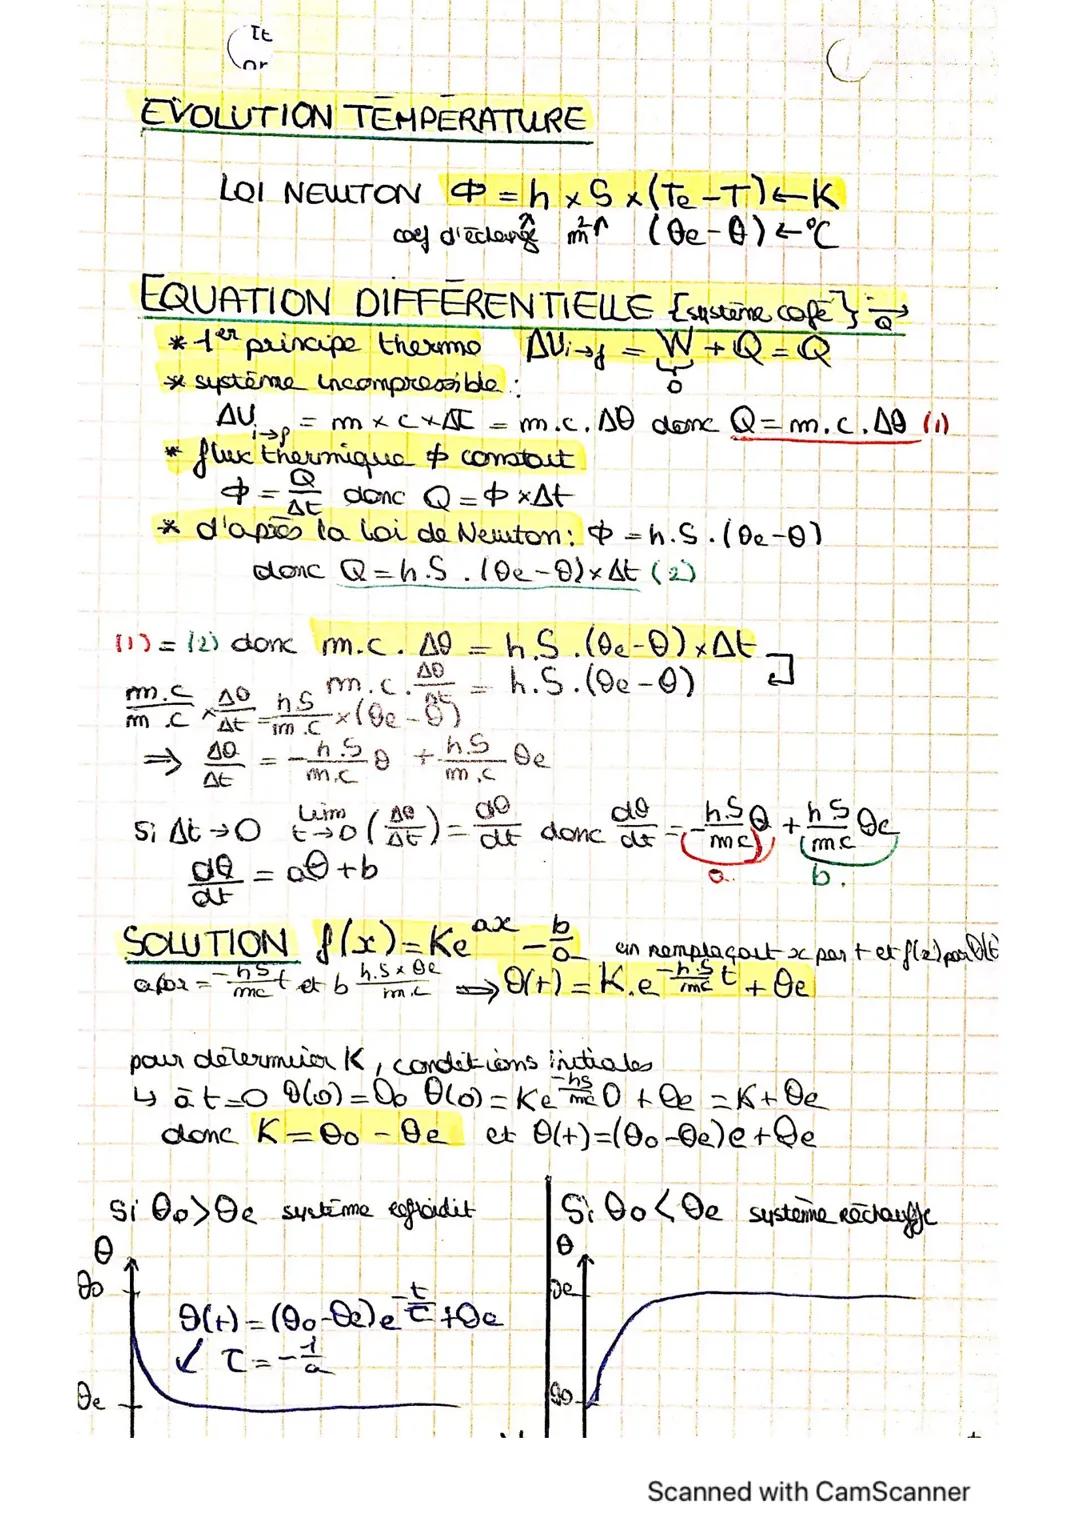 It
or
EVOLUTION TEMPERATURE
LOI NEWTON Φ = h × S × (Te - T) ← K
coef d'échange m² (θe - θ) ← °C
EQUATION DIFFERENTIELLE {système café} Q
* 1er principe thermo ΔUi→f = W + Q = Q
0
* système incompressible :
ΔUi→f = m × c × ΔT = m.c.Δθ donc Q = m.c.Δθ (1)
* flux thermique Φ constant
Φ = Q/Δt donc Q = Φ × Δt
* d'après la loi de Newton : Φ = h.S.(θe - θ)
donc Q = h.S.(θe - θ) × Δt (2)
(1) = (2) donc m.c.Δθ = h.S.(θe - θ) × Δt
m.c.Δθ/Δt = h.S.(θe - θ)
m.c/m.c × Δθ/Δt = h.S/m.c × (θe - θ)
⇒ Δθ/Δt = - h.S/m.c θ + h.S/m.c θe
Si Δt → 0 lim t→0 (Δθ/Δt) = dθ/dt donc dθ/dt = (- h.S/mc) θ + (h.S/mc θe)
a. b.
dθ/dt = aθ + b
SOLUTION f(x) = Ke^ax - b/a en remplaçant x par t et f(x) par θ(t
a par = - hS/mc t et b h.S × θe/m.c ⟹ θ(t) = K.e^(- h.S/mc t) + θe
pour déterminer K, conditions initiales
↳ à t=0 θ(0) = θ0 θ(0) = Ke^(-hS/mc 0) + θe = K + θe
donc K = θ0 - θe et θ(t) = (θ0 - θe)e + θe
Si θ0 > θe système refroidit
θ
θ0
θ(t) = (θ0 - θe)e^(-t/τ) + θe
↙ τ = - 1/a
θe
Si θ0 < θe système réchauffe
θ
θe
θ0
Scanned with CamScanner